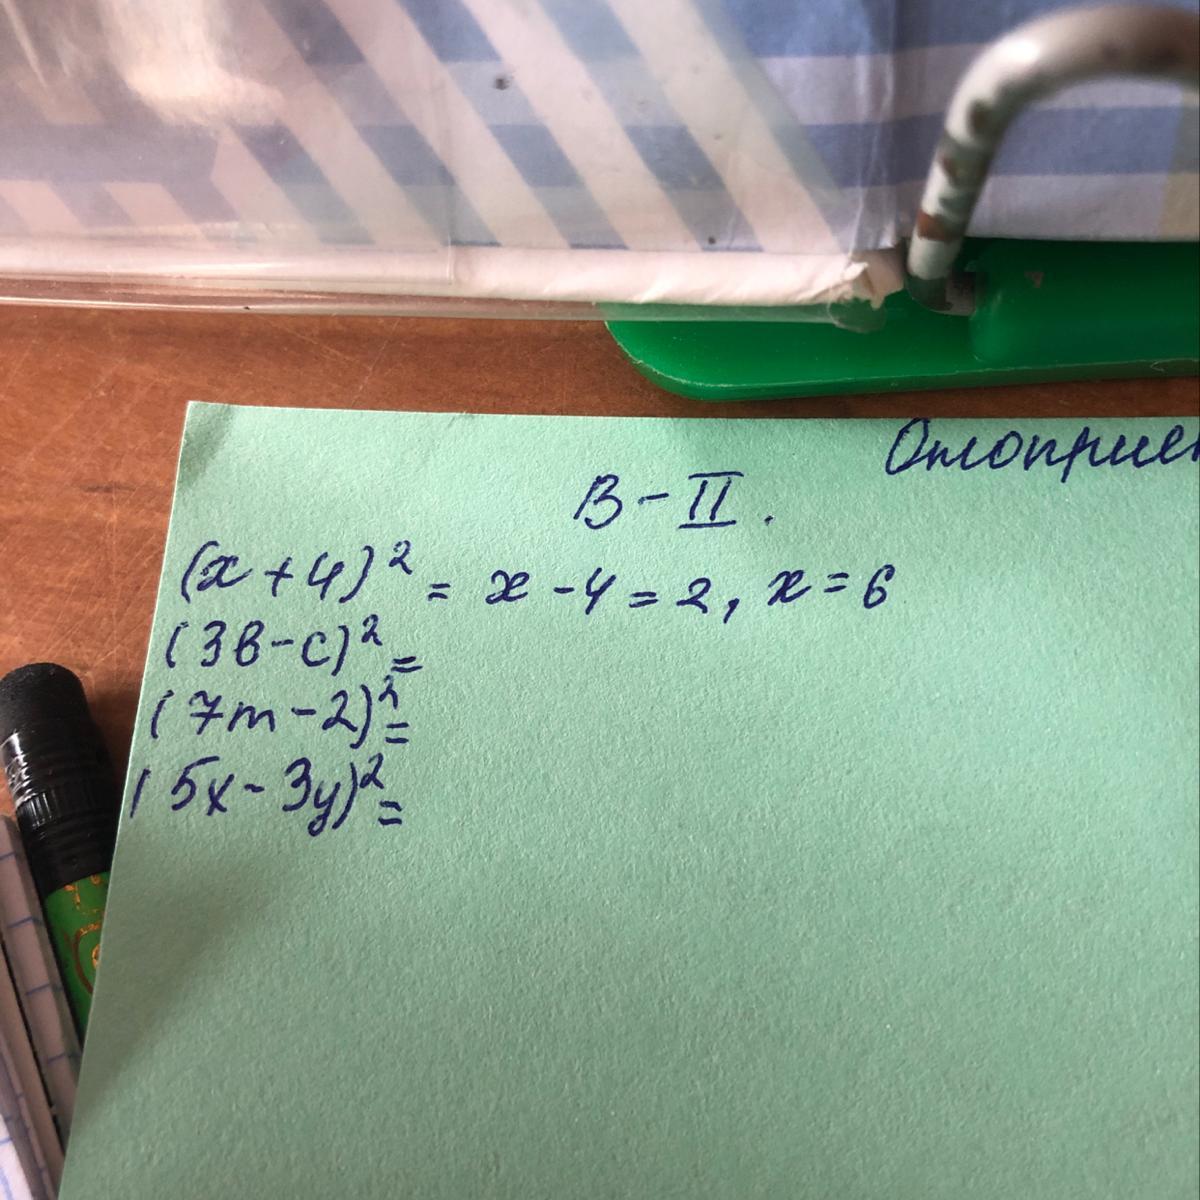 В-II.
(x+4)² = x-4=2, x=6
(3в-с)² =
(7m-2)² =
(5x-3y)² =